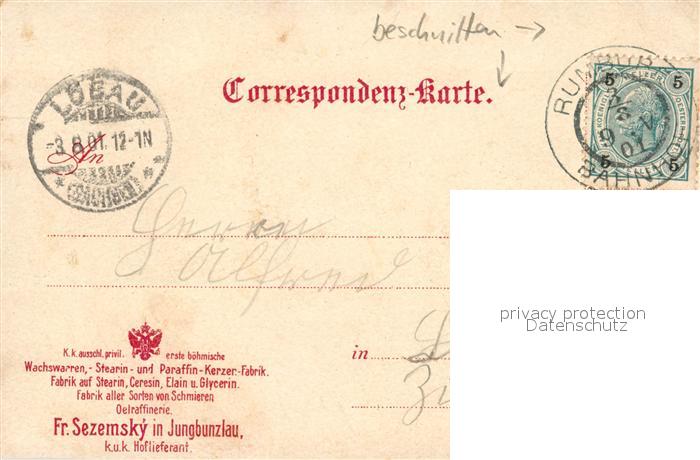 beschnitten
Correspondenz-Karte.
LÖBAU
-3.8.01. 12-1N
(SACHSEN)
RUMBURG
BAHNHOF
5 5
5 5
An
Herrn
Alfred
privacy protection
Datenschutz
in
K.k. ausschl. privil. erste böhmische
Wachswarren,- Stearin- und Paraffin-Kerzen-Fabrik.
Fabrik auf Stearin, Ceresin, Elain u. Glycerin.
Fabrik aller Sorten von Schmieren
Oelraffinerie.
Fr. Sezemský in Jungbunzlau,
k.u.k. Hoflieferant.